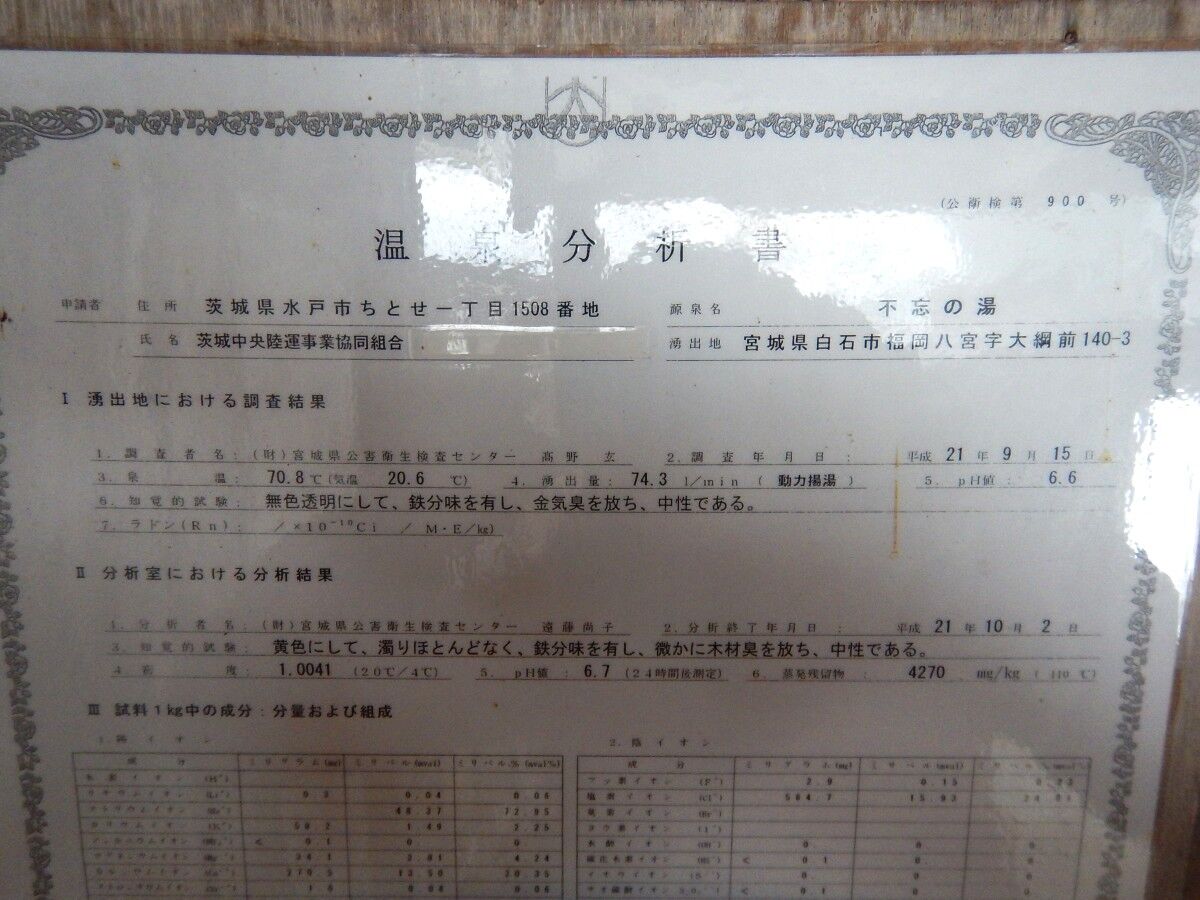 (公衛検第 900 号)
温泉分析書
申請者 住所 茨城県水戸市ちとせ一丁目1508番地
氏名 茨城中央陸運事業協同組合
源泉名 不忘の湯
湧出地 宮城県白石市福岡八宮字大綱前140-3
Ⅰ 湧出地における調査結果
1. 調査者名: (財)宮城県公害衛生検査センター 高野 玄 2. 調査年月日: 平成 21 年 9 月 15 日
3. 泉温: 70.8 ℃(気温 20.6 ℃) 4. 湧出量: 74.3 l/min ( 動力揚湯 ) 5. pH値: 6.6
6. 知覚的試験: 無色透明にして、鉄分味を有し、金気臭を放ち、中性である。
7. ラドン(Rn): /×10⁻¹⁰Ci / M・E/kg)
Ⅱ 分析室における分析結果
1. 分析者名: (財)宮城県公害衛生検査センター 遠藤尚子 2. 分析終了年月日: 平成 21 年 10 月 2 日
3. 知覚的試験: 黄色にして、濁りほとんどなく、鉄分味を有し、微かに木材臭を放ち、中性である。
4 密度: 1.0041 (20℃/4℃) 5. pH値: 6.7 (24時間後測定) 6. 蒸発残留物: 4270 mg/kg ( 110 ℃)
Ⅲ 試料1kg中の成分:分量および組成
1. 陽イオン
成分 ミリグラム(mg) ミリバル(mval) ミリバル%(mval%)
水素イオン (H⁺)
リチウムイオン (Li⁺) 0.3 0.04 0.06
ナトリウムイオン (Na⁺) 48.37 72.95
カリウムイオン (K⁺) 58.2 1.49 2.25
アンモニウムイオン < 0.1 0 0
マグネシウムイオン 34.1 2.81 4.24
270.5 13.50 20.35
ストロンチウムイオン 1.6 0.04 0.06
2. 陰イオン
成分 ミリグラム(mg) ミリバル(mval) ミリバル%(mval%)
フッ素イオン (F⁻) 2.9 0.15 0.23
塩素イオン (Cl⁻) 564.7 15.93
臭素イオン (Br⁻)
ヨウ素イオン (I⁻)
水酸イオン (OH⁻) 0. 0 0
硫化水素イオン (HS⁻) < 0.1 0. 0
イオウイオン (S⁻) 0. 0 0
チオ硫酸イオン < 0.1 0 0